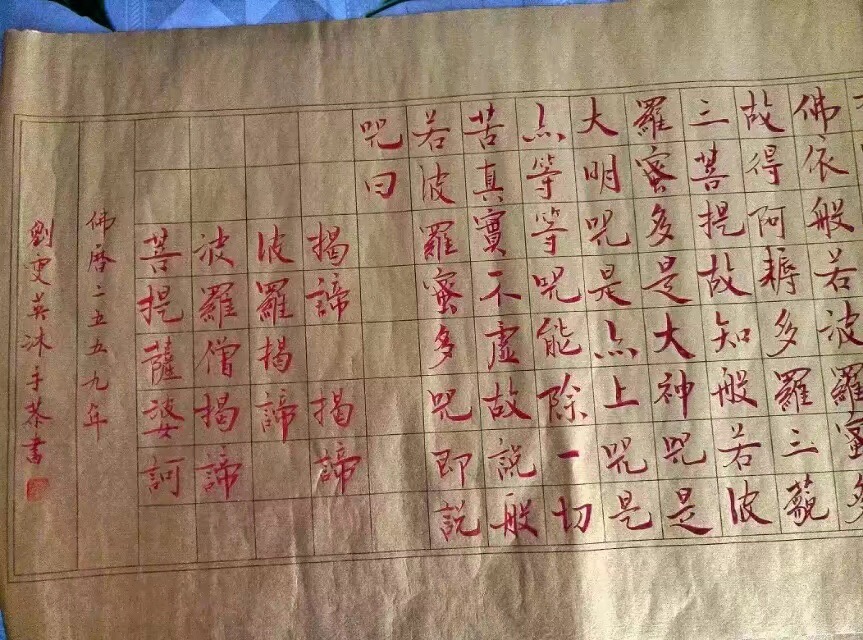 佛依般若波羅蜜多
故得阿耨多羅三藐
三菩提故知般若波
羅蜜多是大神咒是
大明咒是無上咒是
無等等咒能除一切
苦真實不虛故說般
若波羅蜜多咒即說
咒曰
揭諦 揭諦
波羅揭諦
波羅僧揭諦
菩提薩婆訶
佛曆二五五九年
劉 沐手恭書